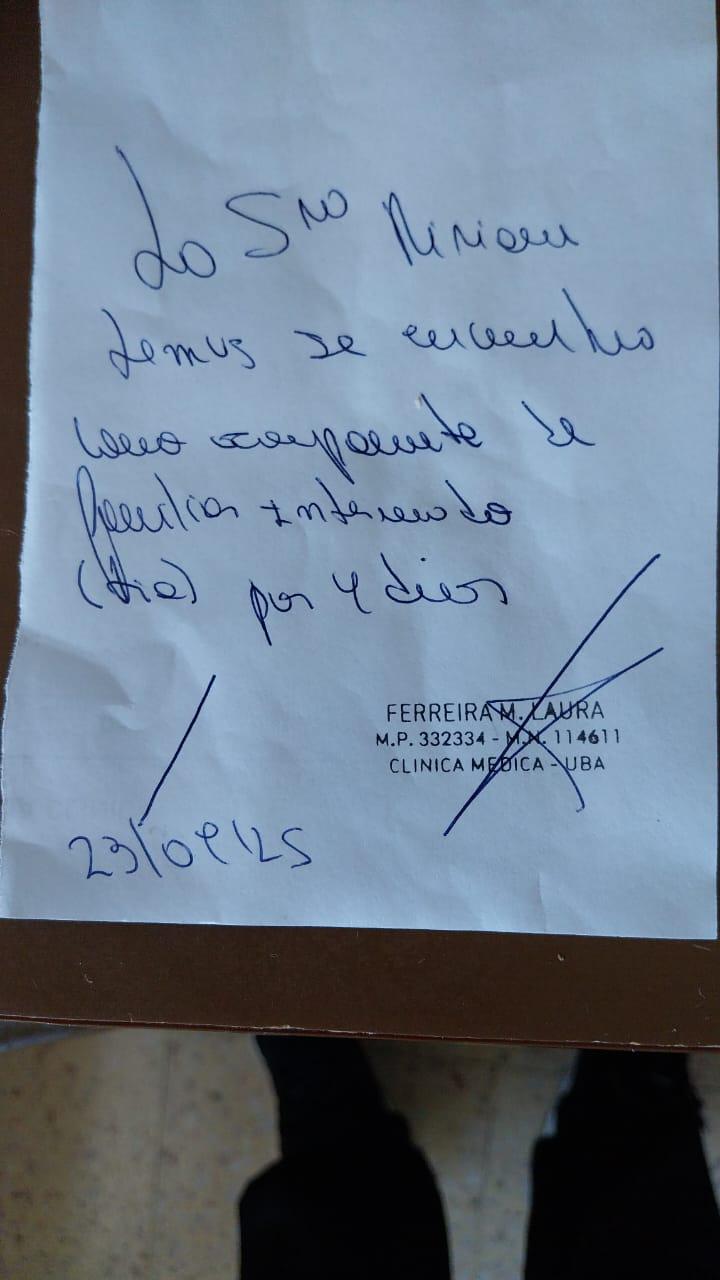 La Sra Miriam
Lemus se encuentra
como acompañante de
familiar internado
(tia) por 4 dias
FERREIRA M. LAURA
M.P. 332334 - M.N. 114611
CLINICA MEDICA - UBA
23/09/25